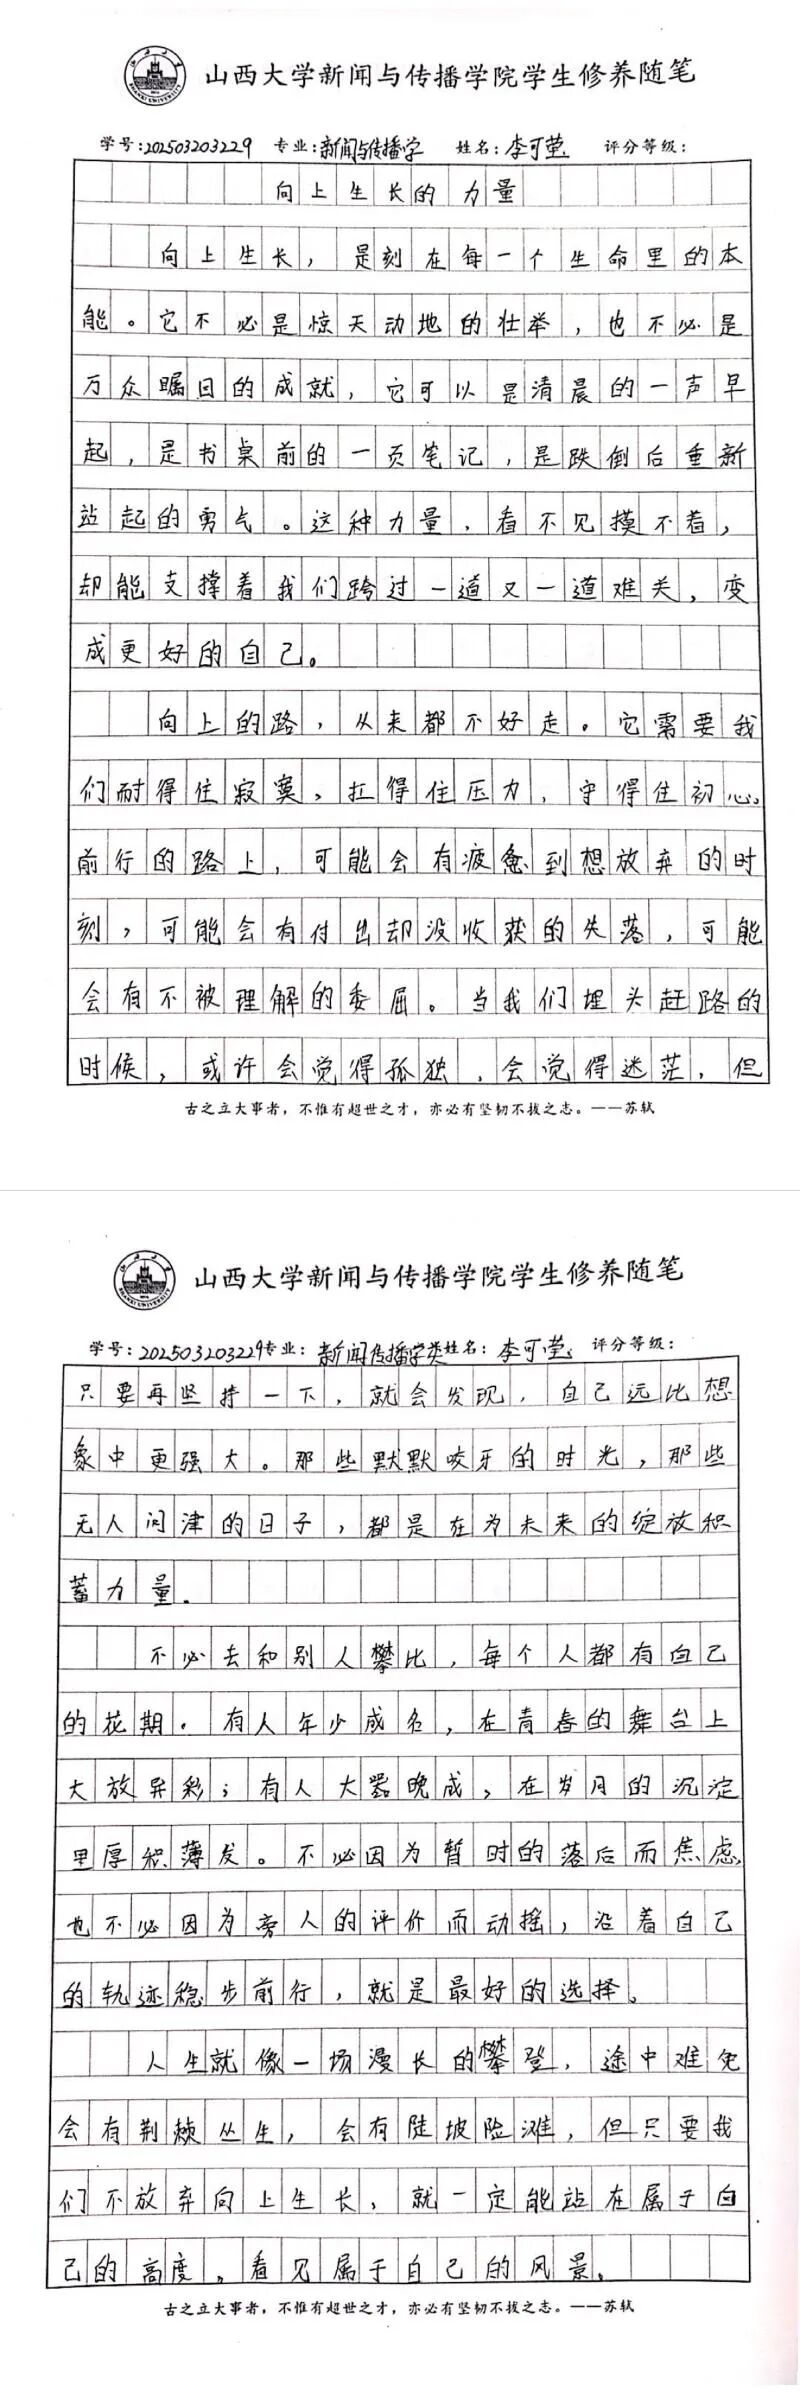 山西大学新闻与传播学院学生修养随笔
学号:202503203229 专业:新闻与传播学 姓名:李可莹 评分等级:
向上生长的力量
向上生长，是刻在每一个生命里的本
能。它不必是惊天动地的壮举，也不必是
万众瞩目的成就，它可以是清晨的一声早
起，是书桌前的一页笔记，是跌倒后重新
站起的勇气。这种力量，看不见摸不着，
却能支撑着我们跨过一道又一道难关，变
成更好的自己。
向上的路，从来都不好走。它需要我
们耐得住寂寞，扛得住压力，守得住初心。
前行的路上，可能会有疲惫到想放弃的时
刻，可能会有付出却没收获的失落，可能
会有不被理解的委屈。当我们埋头赶路的
时候，或许会觉得孤独，会觉得迷茫，但
古之立大事者，不惟有超世之才，亦必有坚韧不拔之志。——苏轼
山西大学新闻与传播学院学生修养随笔
学号:202503203229 专业:新闻传播学类 姓名:李可莹 评分等级:
只要再坚持一下，就会发现，自己远比想
象中更强大。那些默默咬牙的时光，那些
无人问津的日子，都是在为未来的绽放积
蓄力量。
不必去和别人攀比，每个人都有自己
的花期。有人年少成名，在青春的舞台上
大放异彩；有人大器晚成，在岁月的沉淀
里厚积薄发。不必因为暂时的落后而焦虑，
也不必因为旁人的评价而动摇，沿着自己
的轨迹稳步前行，就是最好的选择。
人生就像一场漫长的攀登，途中难免
会有荆棘丛生，会有陡坡险滩，但只要我
们不放弃向上生长，就一定能站在属于自
己的高度，看见属于自己的风景。
古之立大事者，不惟有超世之才，亦必有坚韧不拔之志。——苏轼